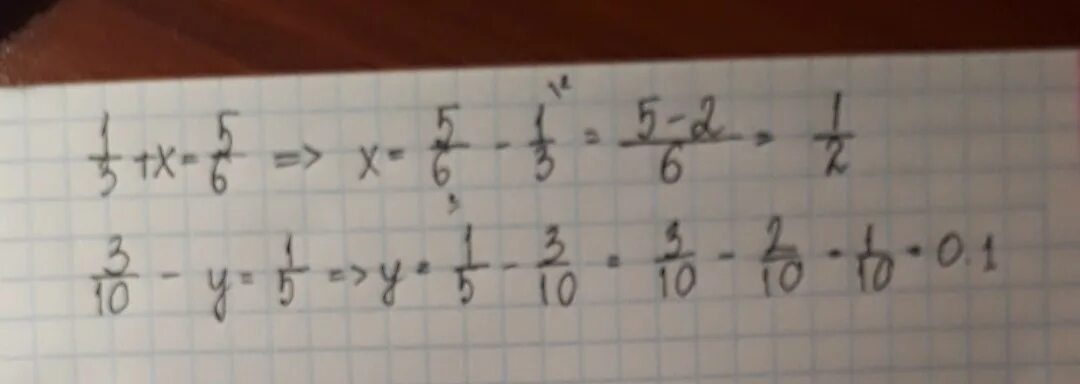 1/3 + x = 5/6 => x = 5/6 - 1/3 \2 = (5-2)/6 = 1/2
3/10 - y = 1/5 => y = 1/5 - 3/10 = 3/10 - 2/10 = 1/10 = 0.1